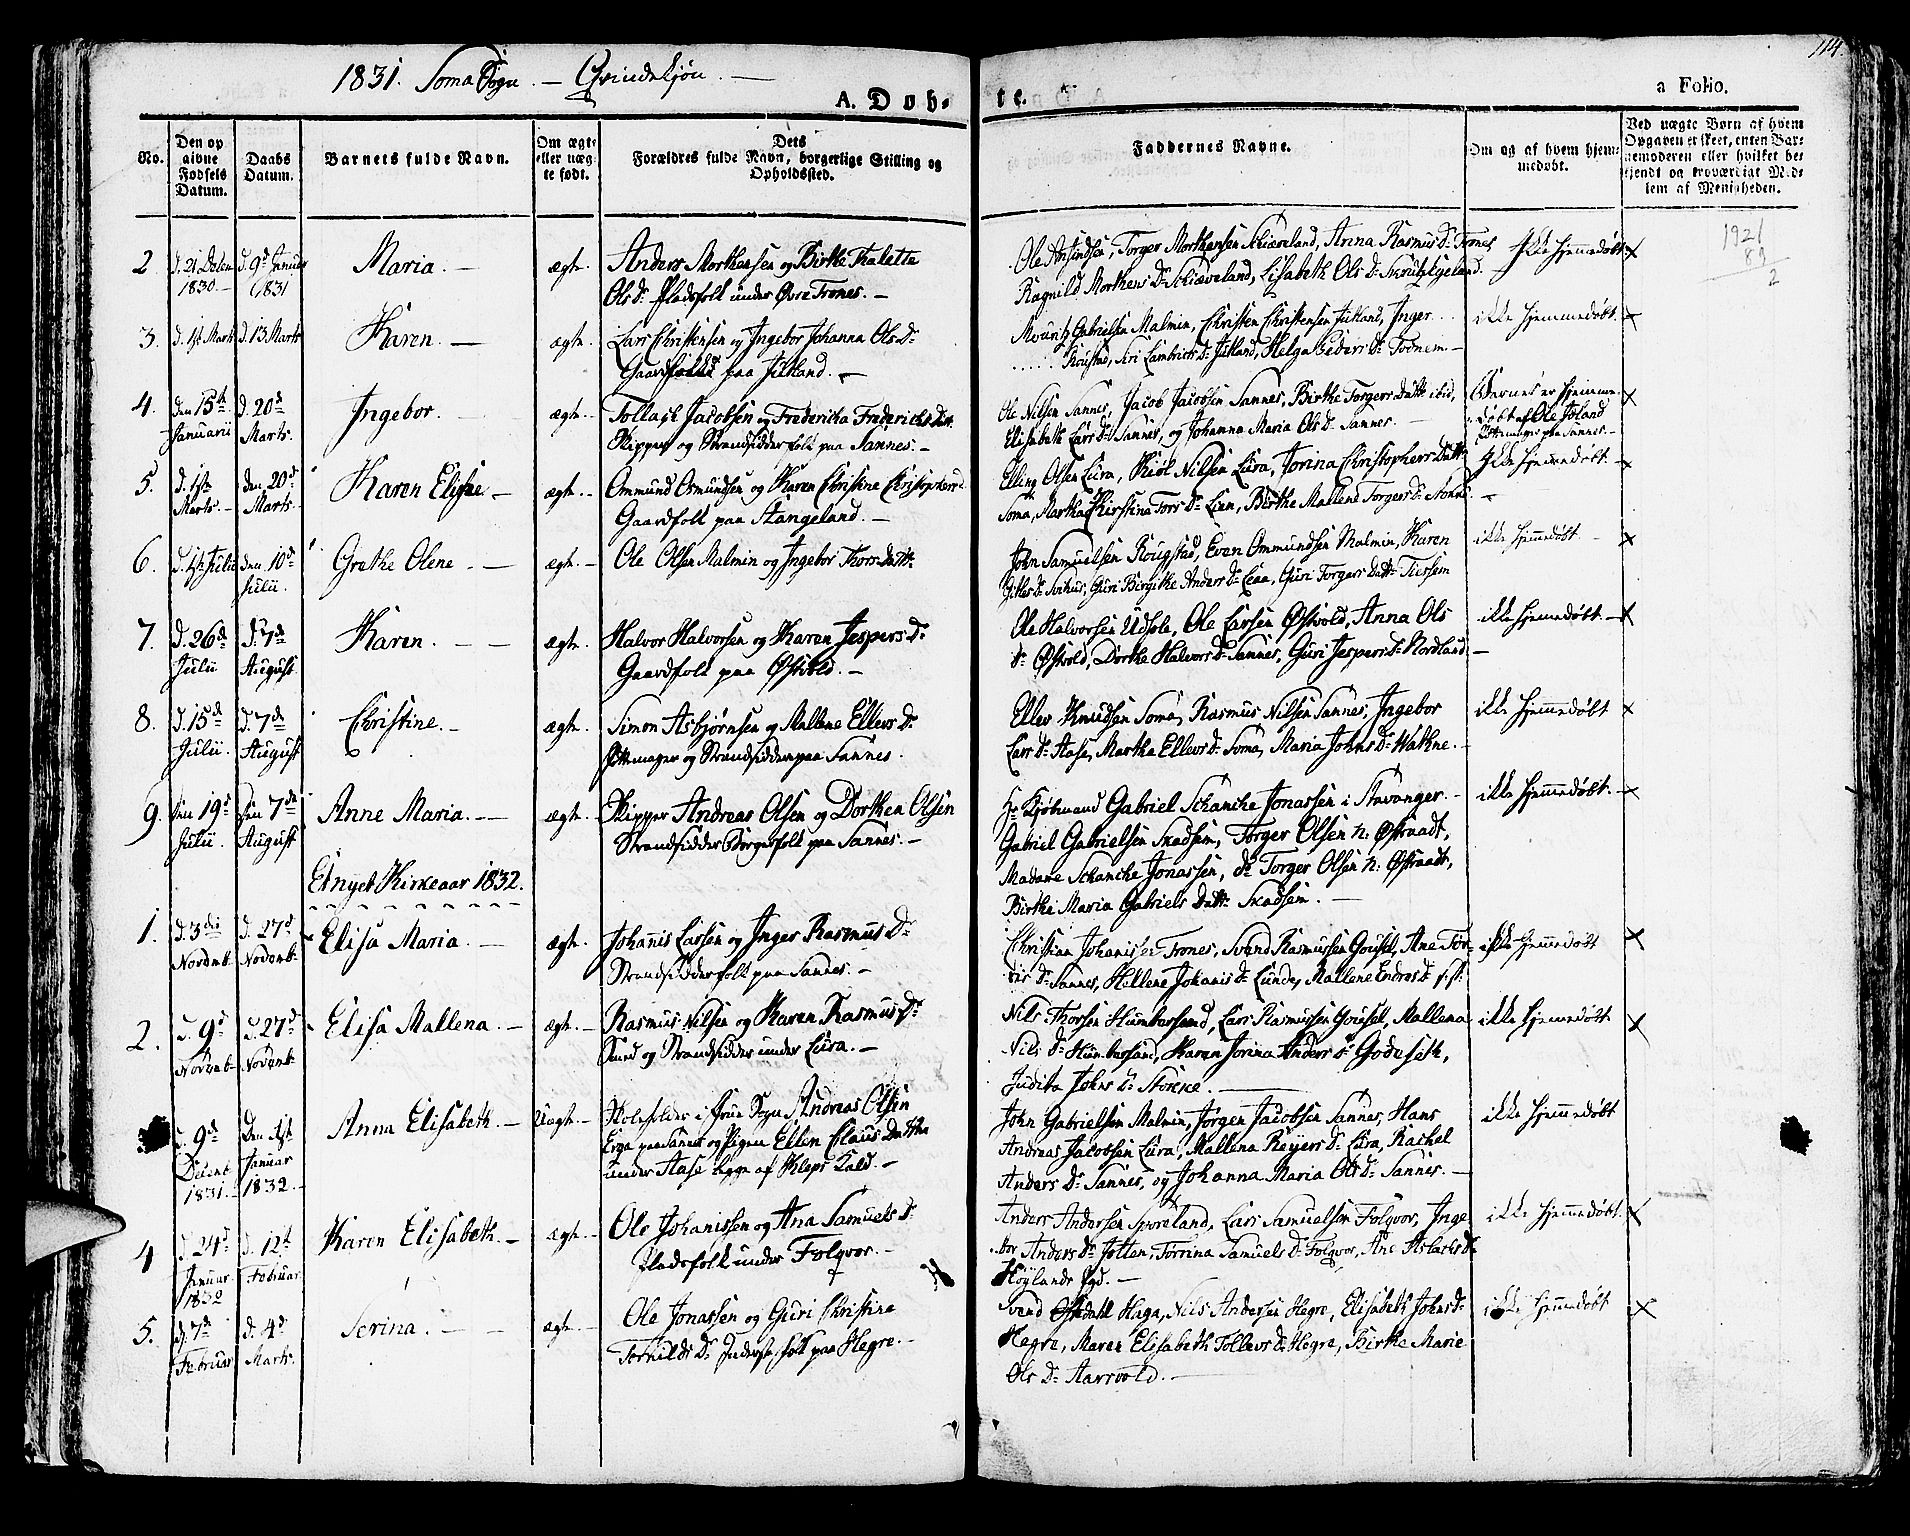 1831. Soma Sogn. — Qvindekjøn. —
114.
A. Døb-
te.
a Folio.
No.
Den op
givne
Fødsels
Datum.
Daabs
Datum.
Barnets fulde Navn.
Om ægte
eller uæg-
te født.
Dets
Forældres fulde Navn, borgerlige Stilling og
Opholdssted.
Faddernes Navne.
Om og af hvem hjem-
medøbt.
Ved uægte Børn af hvem
Opgaven er skeet, enten Bar-
nemoderen eller hvilket be-
kjendt og troværdigt Med-
lem af Menigheden.
1921
89
2
2. d. 21 1830 d. 9d Januar 1831 Maria. — ægte.
Anders Morthensen og Birthe Thaletta
Ols Dr. Pladsfolk under Øvre Trones. —
Torger Morthensen Schiæveland, Anna Rasmus Dr. Trones
Ragnild Morthens Dr. Schiæveland, Lisabeth Ols Dr.
Ikke hjemmedøbt. x
3. d. 1st Marts d. 13 Marts Karen. — ægte.
Lars Christensen og Ingebor Johanna Ols Dr.
Gaardfolk paa Jutland. —
Mouritz Gabrielsen Malmin, Christen Christensen Jutland, Inger
Siri Lambricts Dr. Jutland, Helga Peders Dr.
ikke hjemmedøbt. x
4. den 15th Januarii d. 20de Marts. Ingebor. ægte. —
Tollach Jacobsen og Fredericha Fredrichs Datt.
Skipper og Strandsidder folk paa Sannes. —
Ole Nilsen Sannes, Jacob Jacobsen Sannes, Birthe Torgers Datt. ibid,
Elisabeth Lars Dr. Sannes, og Johanna Maria Ols Dr. Sannes. —
Barnet er hjemme-
døbt af Ole Joland
Pottemager paa Sannes. — x
5. d. 1st Marts. — den 20de Marts. Karen Elisne — ægte. —
Ommund Osmundsen og Karen Christine Christophers Dr.
Gaardfolk paa Stangeland. —
Elling Olsen Lura, Nilsen Lura, Jorina Christophers Datt.
Soma, Martha Christina Tors Dr. Lura, Birthe Mallena Torgers Dr.
Ikke hjemmedøbt. x
6. d. 1st Julii den 10de Julii. Grethe Olene — ægte. —
Ole Olsen Malmin og Ingebor Thors Datt.
John Samuelsen Rougstad, Even Ommundsen Malmin, Karen
Guri Birgithe Anders Dr. Lura, Guri Torgers Datt.
ikke hjemmedøbt. — x
7. d. 26de Julii d. 7de August. Karen. — — ægte.
Halvor Halvorsen og Karen Jespers Dr.
Gaardfolk paa Østvold. —
Ole Halvorsen Ole Larsen Østvold, Anna Ols
Dr. Østvold, Dorthe Halvors Dr. Sannes, Guri Jespers Dr. Nordland. —
ikke hjemmedøbt. — x
8. d. 15de Julii. d. 7de August Christine. — ægte.
Simon Asbjørnsen og Mallene Ellevs Dr.
Pottemager og Strandsidder paa Sannes.
Ellev Knudsen Soma, Rasmus Nilsen Sannes, Ingebor
Lars Dr. Aase, Martha Ellevs Dr. Soma, Maria Johns Dr. Wathne. —
ikke hjemmedøbt x
9. den 19d Julii. den 7de August Anne Maria. — ægte.
Skipper Andreas Olsen og Dorthea Olsen
Strandsidder Borgerfolk paa Sannes. —
Hr. Kjøbmand Gabriel Schanche Jonassen i Stavanger. —
Gabriel Gabrielsen Skadsem, Torger Olsen n. Østraadt,
Madame Schanche Jonassen, do Torger Olsen n. Østraadt,
Birthe Maria Gabriels Datt. Skadsem. —
ikke hjemmedøbt. — x
Et nyet Kirkeaar 1832.
1. d. 3die Novemb. d. 27d Novemb. Elisa Maria. — ægte.
Johanis Larsen og Inger Rasmus Dr.
Strandsidderfolk paa Sannes. —
Christian Johanisen Trones, Svend Rasmusen Gousel, Ane Tor-
Dr. Sannes, Hellene Johanis Dr. Lunde, Mallene Endres Dr.
ikke hjemmedøbt x
2. d. 9d Novemb. d. 27d Novemb. Elisa Mallena. — ægte. —
Rasmus Nilsen og Karen Rasmus Dr.
Smed og Strandsidder under Lura. —
Nils Thorsen Lars Rasmusen Gousel, Mallena
Nils Dr. Karen Jorina Anders Dr. Godeseth,
Judita Johns Dr. —
ikke hjemmedøbt x
d. 9d Decemb. 1831. — Den 1st Januar 1832. — Anna Elisabeth. — Uægte. —
Sogn Andreas Olsen
paa Sannes og Pigen Ellen Claus Datter
under Aase begge af Kleps Kald. —
John Gabrielsen Malmin, Jørgen Jacobsen Sannes, Hans
Andreas Jacobsen Lura, Mallena Reyers Dr. Lura, Rachel
Anders Dr. Sannes, og Johanna Maria Ols Dr. Sannes. —
ikke hjemmedøbt
4 d. 24d Januar 1832 d. 12t Februar Karen Elisabeth. — ægte. —
Ole Johanissen og Ana Samuels Dr.
Pladsfolk under Folqvor. —
Anders Andersen Lars Samuelsen Folqvor, Inge-
bor Anders Dr. Jotten, Torrina Samuels Dr. Folqvor, Ane Aslachs Dr.
Höylands —
ikke hjemmedøbt x
5. d. 7d Februar d. 4d Marts. Serina. — — ægte.
Ole Jonassen og Guri Christine
Tornilds Dr. folk paa Hegre. —
Svend Haga, Nils Andersen Hegre, Elisabeth Johns Dr.
Hegre, Maren Elisabeth Tollevs Dr. Hegre, Birthe Marie
Ols Dr. Aarsvold. —
ikke hjemmedøbt x